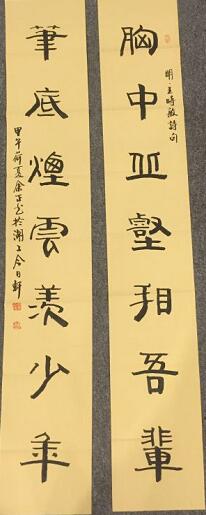 明王時敏詩句
胸中丘壑吾輩
筆底煙雲羨少年
甲午荷夏余正於湖上日軒